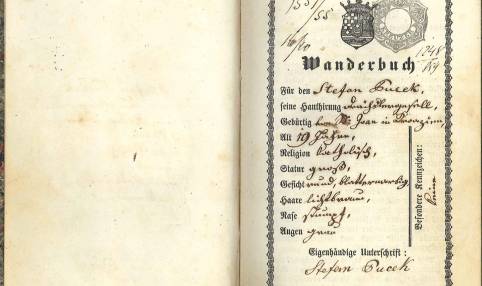 1551/55
16/10
1248
Wanderbuch
Für den Stefan Pucek,
seine Hanthirung
Gebürtig St. Ivan in
Alt 19 Jahre,
Religion katholisch,
Statur groß,
Gesicht rund, blatternarbig
Haare lichtbraun,
Nase stumpf,
Augen grau
Besondere Kennzeichen: keine
Eigenhändige Unterschrift:
Stefan Pucek